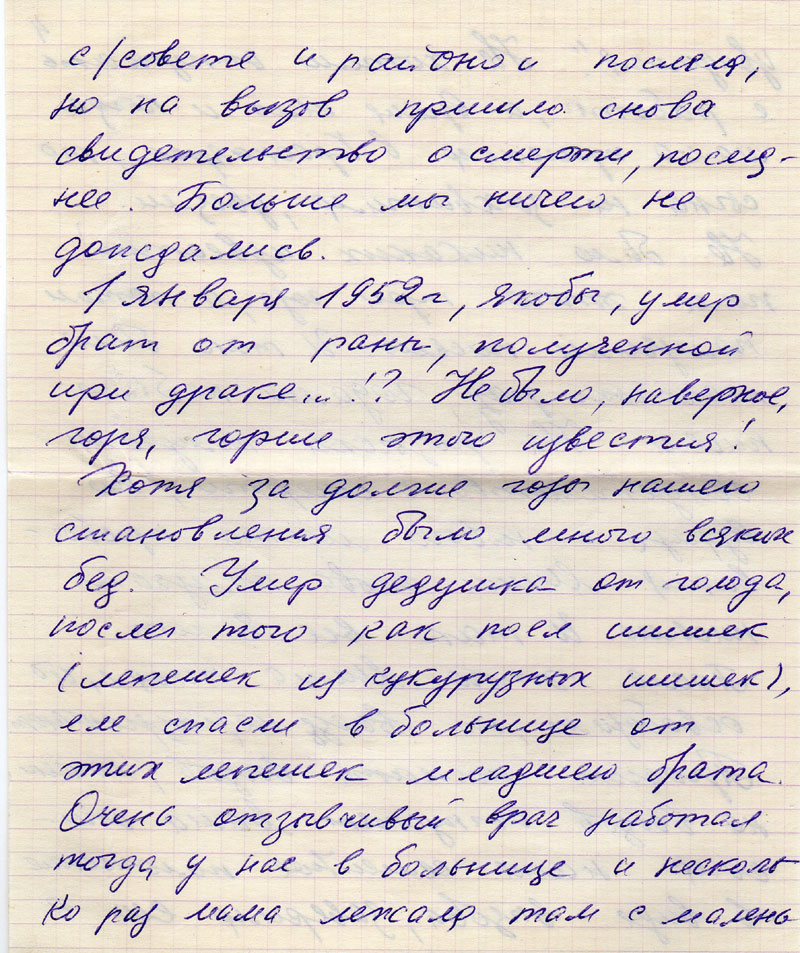 с/совете и районом послела,
но на вызов пришло снова
свидетельство о смерти, послед-
нее. Больше мы ничего не
дождались.
1 января 1952 г, якобы, умер
брат от раны, полученной
при драке...!? Не было, наверное,
горя, горше этого известия!
Хотя за долгие годы нашего
становления было много всяких
бед. Умер дедушка от голода,
после того как поел шишек
(лепешек из кукурузных шишек),
еле спасли в больнице от
этих лепешек младшего брата.
Очень отзывчивый врач работал
тогда у нас в больнице и несколь
ко раз мама лежала там с малень